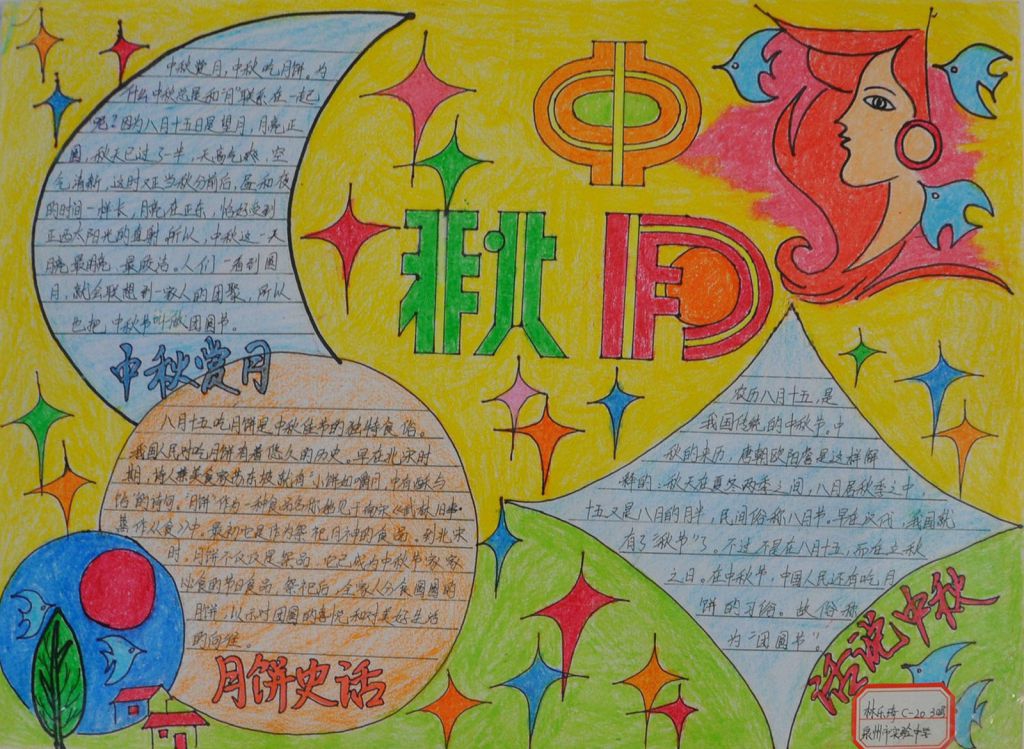 中
秋月
中秋赏月,中秋吃月饼。为
什么中秋总是和"月"联系在一起
呢?因为八月十五日是望月,月亮正
圆,秋天已过了一半,天高气爽,空
气清新,这时又正当秋分前后,昼和夜
的时间一样长,月亮在正东,恰好受到
正西太阳光的直射,所以,中秋这一天
月亮最明亮,最皎洁。人们一看到圆
月,就会联想到一家人的团聚,所以
也把中秋节叫做团圆节。
中秋赏月
八月十五吃月饼是中秋佳节的独特食俗。
我国人民对吃月饼有着悠久的历史。早在北宋时
期,诗人兼美食家苏东坡就有"小饼如嚼月,中有酥与
饴"的诗句。"月饼"作为一种食品名称始见于南宋《武林旧事·
蒸作从食》中。最初它是作为祭祀月神的食品。到北宋
时,月饼不仅仅是祭品,它已成为中秋节家家
必食的节日食品。祭祀后,全家人分食圆圆的
月饼,以示对团圆的喜悦和对美好生活
的向往。
月饼史话
农历八月十五,是
我国传统的中秋节。中
秋的来历,唐朝欧阳詹是这样解
释的:秋天在夏冬两季之间,八月居秋季之中,
十五又是八月的月半,民间俗称八月节。早在汉代,我国就
有了"秋节"了。不过不是在八月十五,而在立秋
之日。在中秋节,中国人民还有吃月
饼的习俗。故俗称
为"团圆节"。
话说中秋
林乐琦 C-20 3号
泉州市实验中学